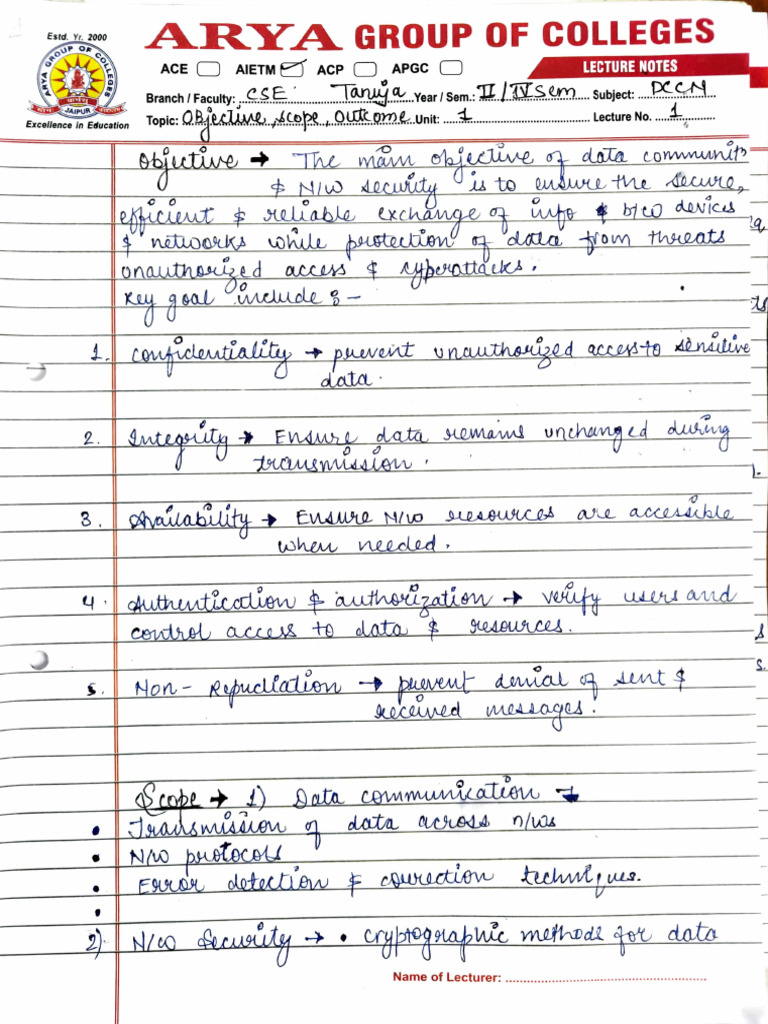 Estd. Yr. 2000
ARYA GROUP OF COLLEGES
ARYA GROUP OF COLLEGES
JAIPUR
Excellence in Education
ACE AIETM ACP APGC LECTURE NOTES
Branch / Faculty: CSE Tanuja Year / Sem.: II/IV Sem Subject: DCCN
Topic: Objective, scope, outcome Unit: 1 Lecture No. 1
Objective → The main objective of data communi
& N/W security is to ensure the secure,
efficient & reliable exchange of info & b/w devices
& networks while protection of data from threats
unauthorized access & cyperattacks.
Key goal include :-
1. Confidentiality → prevent unauthorized access to sensitive
data.
2. Integrity → Ensure data remains unchanged during
transmission.
3. Availability → Ensure N/W resources are accessible
when needed.
4. Authentication & authorization → verify users and
control access to data & resources.
5. Non- Repudiation → prevent denial of sent &
received messages.
Scope → 1) Data communication →
• Transmission of data across n/ws
• N/W protocols
• Error detection & correction techniques.
•
2) N/W Security → • cryptographic methods for data
Name of Lecturer: